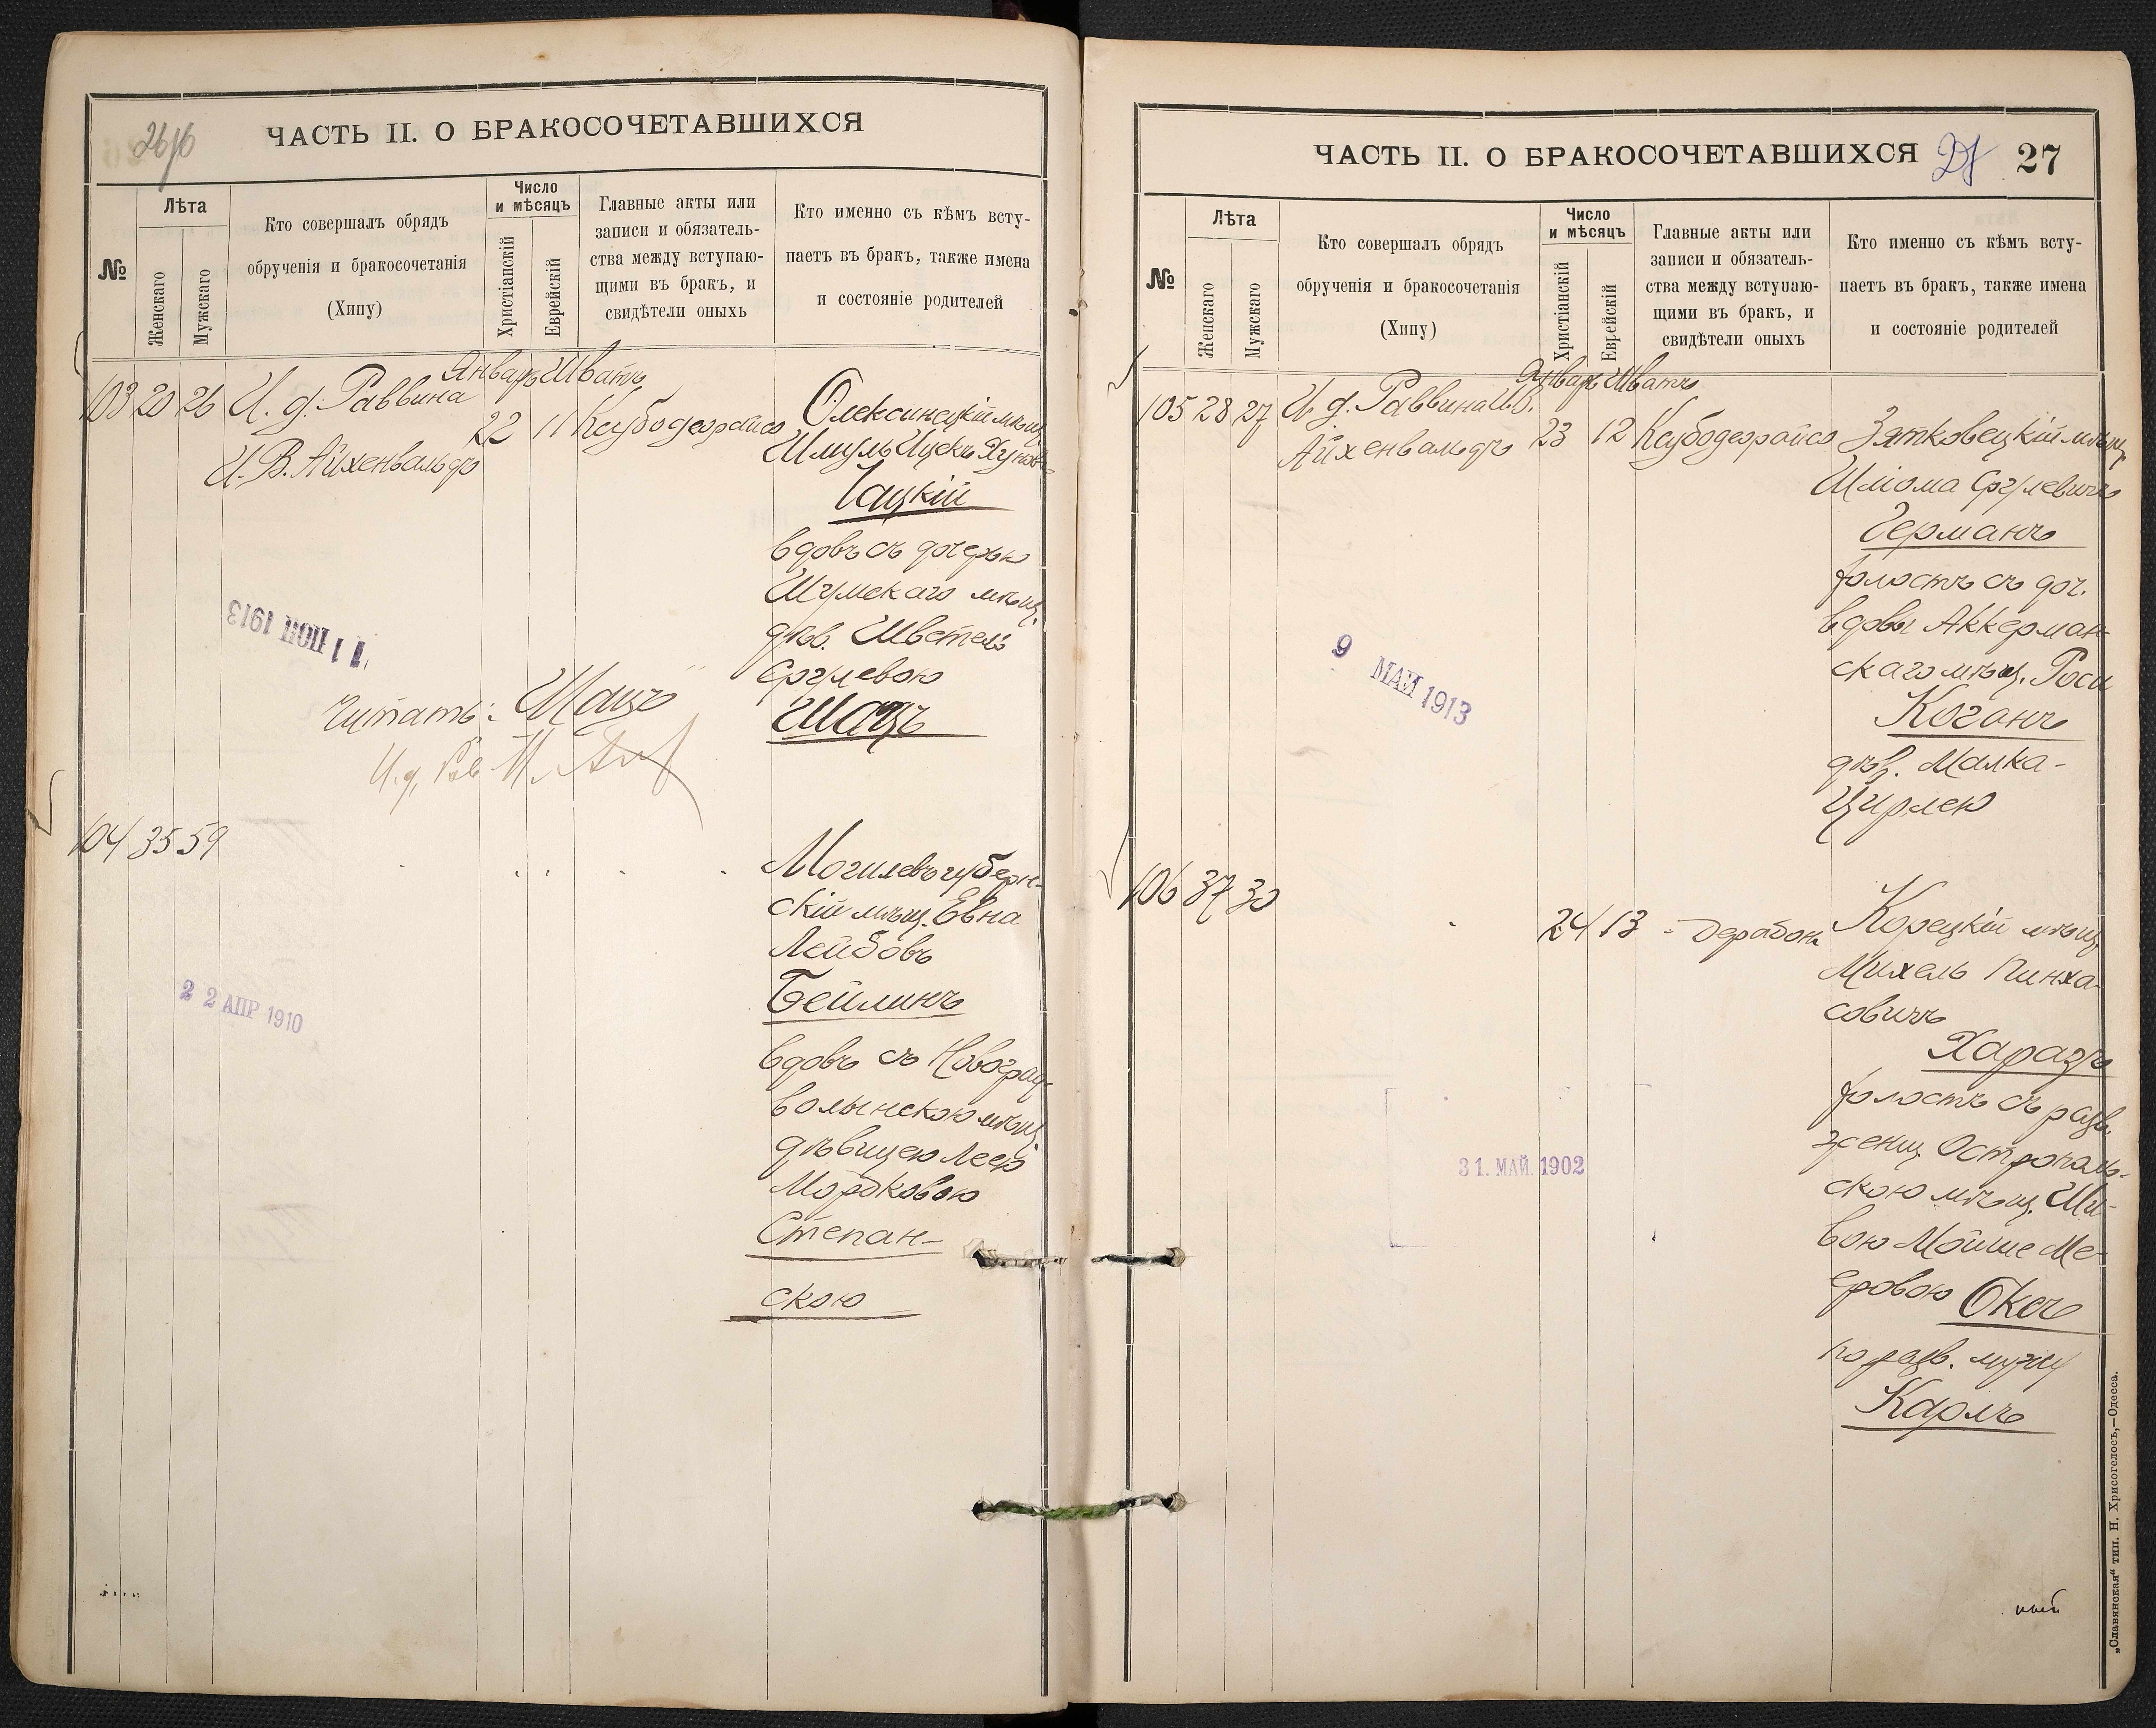 26/б
ЧАСТЬ II. О БРАКОСОЧЕТАВШИХСЯ
№
Лѣта
Женскаго
Мужскаго
Кто совершалъ обрядъ
обрученія и бракосочетанія
(Хипу)
Число
и мѣсяцъ
Христіанскій
Еврейскій
Главные акты или
записи и обязатель-
ства между вступаю-
щими въ бракъ, и
свидѣтели оныхъ
Кто именно съ кѣмъ всту-
паетъ въ бракъ, также имена
и состояніе родителей
Январь Шватъ
103 20 26 И. д. Раввина
И. В. Айхенвальдъ
22 11
Олексинецкій мѣщ.
Шмуль Ицекъ
Чацкій
вдовъ съ дочерью
Шумскаго мѣщ.
дѣв. Шветель
Срулевою
Шацъ
11 ІЮН 1913
Читать: Шацъ
И. д.
104 35 59
Могилевъ губерн-
скій мѣщ. Евна
Лейбовъ
Бейлинъ
вдовъ съ Новоград-
волынскою мѣщ.
дѣвицею Леею
Мордковою
Степан-
скою
22 АПР 1910
ЧАСТЬ II. О БРАКОСОЧЕТАВШИХСЯ
27 27
№
Лѣта
Женскаго
Мужскаго
Кто совершалъ обрядъ
обрученія и бракосочетанія
(Хипу)
Число
и мѣсяцъ
Христіанскій
Еврейскій
Главные акты или
записи и обязатель-
ства между вступаю-
щими въ бракъ, и
свидѣтели оныхъ
Кто именно съ кѣмъ всту-
паетъ въ бракъ, также имена
и состояніе родителей
Январь Шватъ
105 28 27 И. д. Раввина И. В.
Айхенвальдъ
23 12
Зятковецкій мѣщ.
Шліома Срулевичъ
Германъ
холостъ съ доч.
вдовы Аккерман-
скаго мѣщ. Роси
Коганъ
дѣв. Малка-
Цирлею
9 МАЙ 1913
106 37 30
24 13
Корецкій мѣщ.
Михель Пинха-
совичъ
Харазъ
холостъ съ разв.
женщ. Острополь-
скою мѣщ. Ши-
вою Мойше Ме-
еровою Оксъ
по разв. мужу
Карлъ
31. МАЙ. 1902
„Славянская“ тип. Н. Хрисогелосъ,—Одесса.